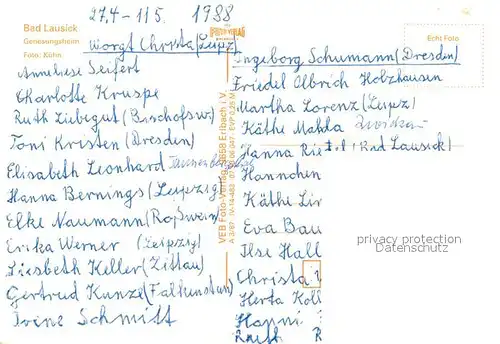 27.4 - 11.5. 1988
Bad Lausick
Genesungsheim
Foto: Kühn
Worgt Christa (Leipz)
Anneliese Seifert
Charlotte Kruspe
Ruth Liebegut (Bischofsw)
Toni Kristen (Dresden)
Elisabeth Leonhard
Hanna Bernings (Leipzig)
Elke Naumann (Roßwein)
Erika Werner (Leipzig)
Liesbeth Keller (Zittau)
Gertrud Kunze (Falkenstein)
Irene Schmitt
VEB Foto-Verlag 9658 Erlbach i. V.
Echt Foto
Ingeborg Schumann (Dresden)
Friedel Olbrich Holzhausen
Martha Lorenz (Leipz)
Käthe Mahla Zwickau
Hanna (Bad Lausick)
Hannchen
Käthe
Eva Bau
Ilse Hall
Christa
Herta Koll
Hanni
Ruth R
privacy protection
Datenschutz